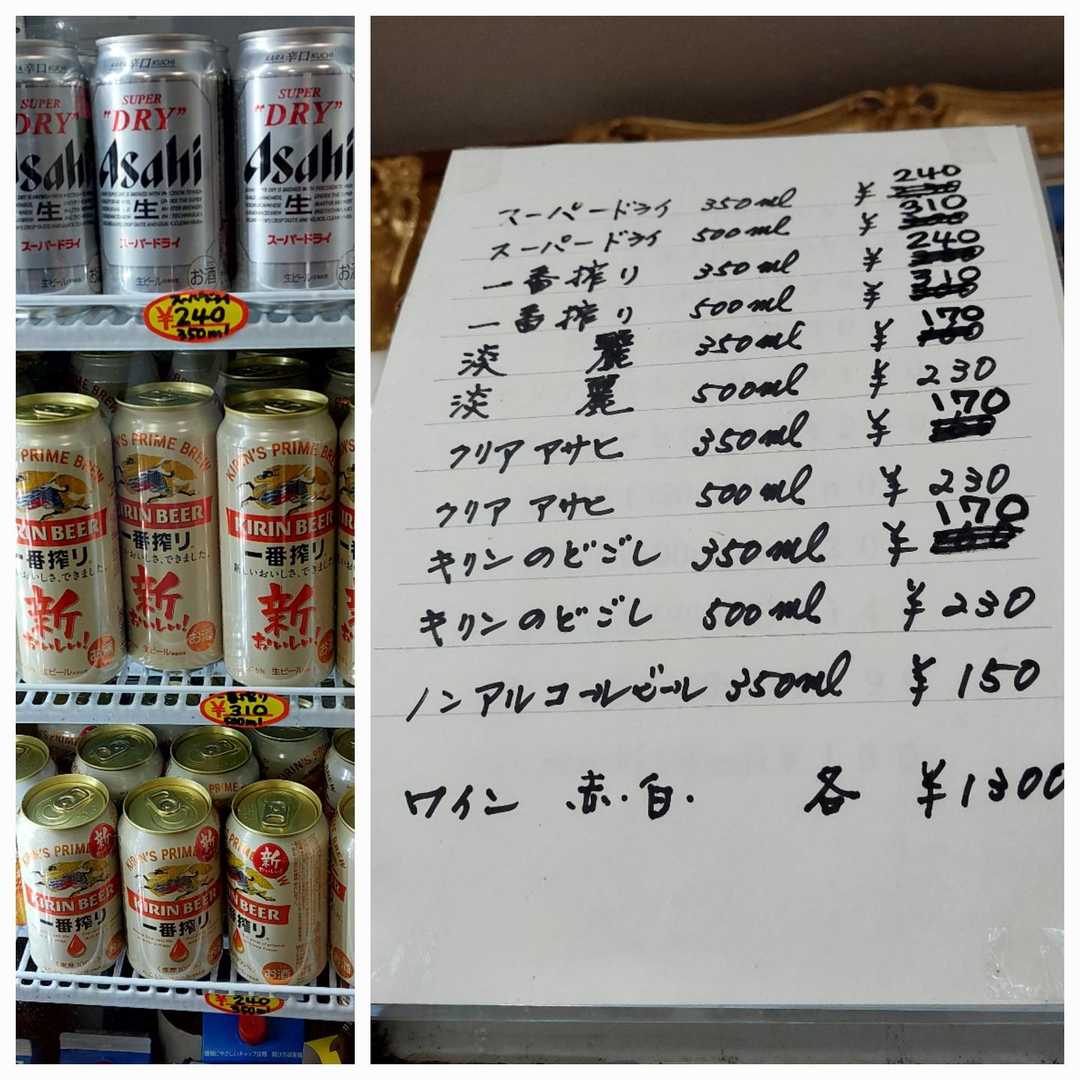 KARA 辛口 KUCHI
SUPER
"DRY"
Asahi
生
スーパードライ
生ビール
お酒
SUPER
"DRY"
Asahi
生
スーパードライ
生ビール
お酒
スーパードライ
¥240
350ml
KIRIN'S PRIME BREW
KIRIN BEER
一番搾り
おいしさ、できました。
新
おいしい!
お酒
生ビール
KIRIN'S PRIME BREW
KIRIN BEER
一番搾り
新しいおいしさ、できました。
新
おいしい!
お酒
生ビール
一番搾り
¥310
500ml
KIRIN'S PRIME
新
KIRIN BEER
一番搾り
KIRIN'S PRIME
新
KIRIN BEER
一番搾り
新
おいしい!
KIRIN BEER
一番搾り
お酒
¥240
350ml
スーパードライ 350ml ¥240
スーパードライ 500ml ¥310
一番搾り 350ml ¥240
一番搾り 500ml ¥310
淡麗 350ml ¥170
淡麗 500ml ¥230
クリアアサヒ 350ml ¥170
クリアアサヒ 500ml ¥230
キリンのどごし 350ml ¥170
キリンのどごし 500ml ¥230
ノンアルコールビール 350ml ¥150
ワイン 赤・白・ 各 ¥1300